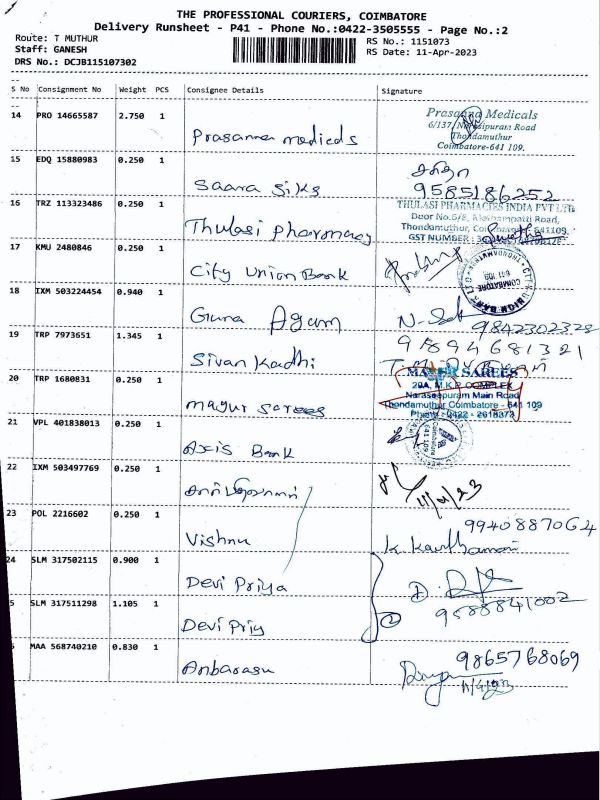 THE PROFESSIONAL COURIERS, COIMBATORE
Delivery Runsheet - P41 - Phone No.:0422-3505555 - Page No.:2
Route: T MUTHUR
Staff: GANESH
DRS No.: DCJB115107302
RS No.: 1151073
RS Date: 11-Apr-2023
S No Consignment No Weight PCS Consignee Details Signature
14 PRO 14665587 2.750 1 Prasanna medicals
Prasanna Medicals
6/137, Narasipuram Road
Thondamuthur
Coimbatore-641 109.
15 EDQ 15880983 0.250 1 Saara Silks
9585186252
16 TRZ 113323486 0.250 1 Thulasi pharmacy
THULASI PHARMACIES INDIA PVT LTD
Door No.6/8,
Thondamuthur, Coimbatore 641109.
GST NUMBER:
17 KMU 2480846 0.250 1 City Union Bank
18 IXM 503224454 0.940 1 Guna Agam
9842302328
19 TRP 7973651 1.345 1 Sivan Kadhi
9894681321
20 TRP 1680831 0.250 1 mayur sarees
MAYUR SAREES
20A, M.K.P. COMPLEX
Naraseepuram Main Road
Thondamuthur Coimbatore - 641 109
21 VPL 401838013 0.250 1 Axis Bank
22 IXM 503497769 0.250 1
11/4/23
23 POL 2216602 0.250 1 Vishnu
9940887064
K. Kauthamani
24 SLM 317502115 0.900 1 Devi Priya
9588841002
SLM 317511298 1.105 1 Devi Priy
②
MAA 568740210 0.830 1 Anbarasu
9865768069